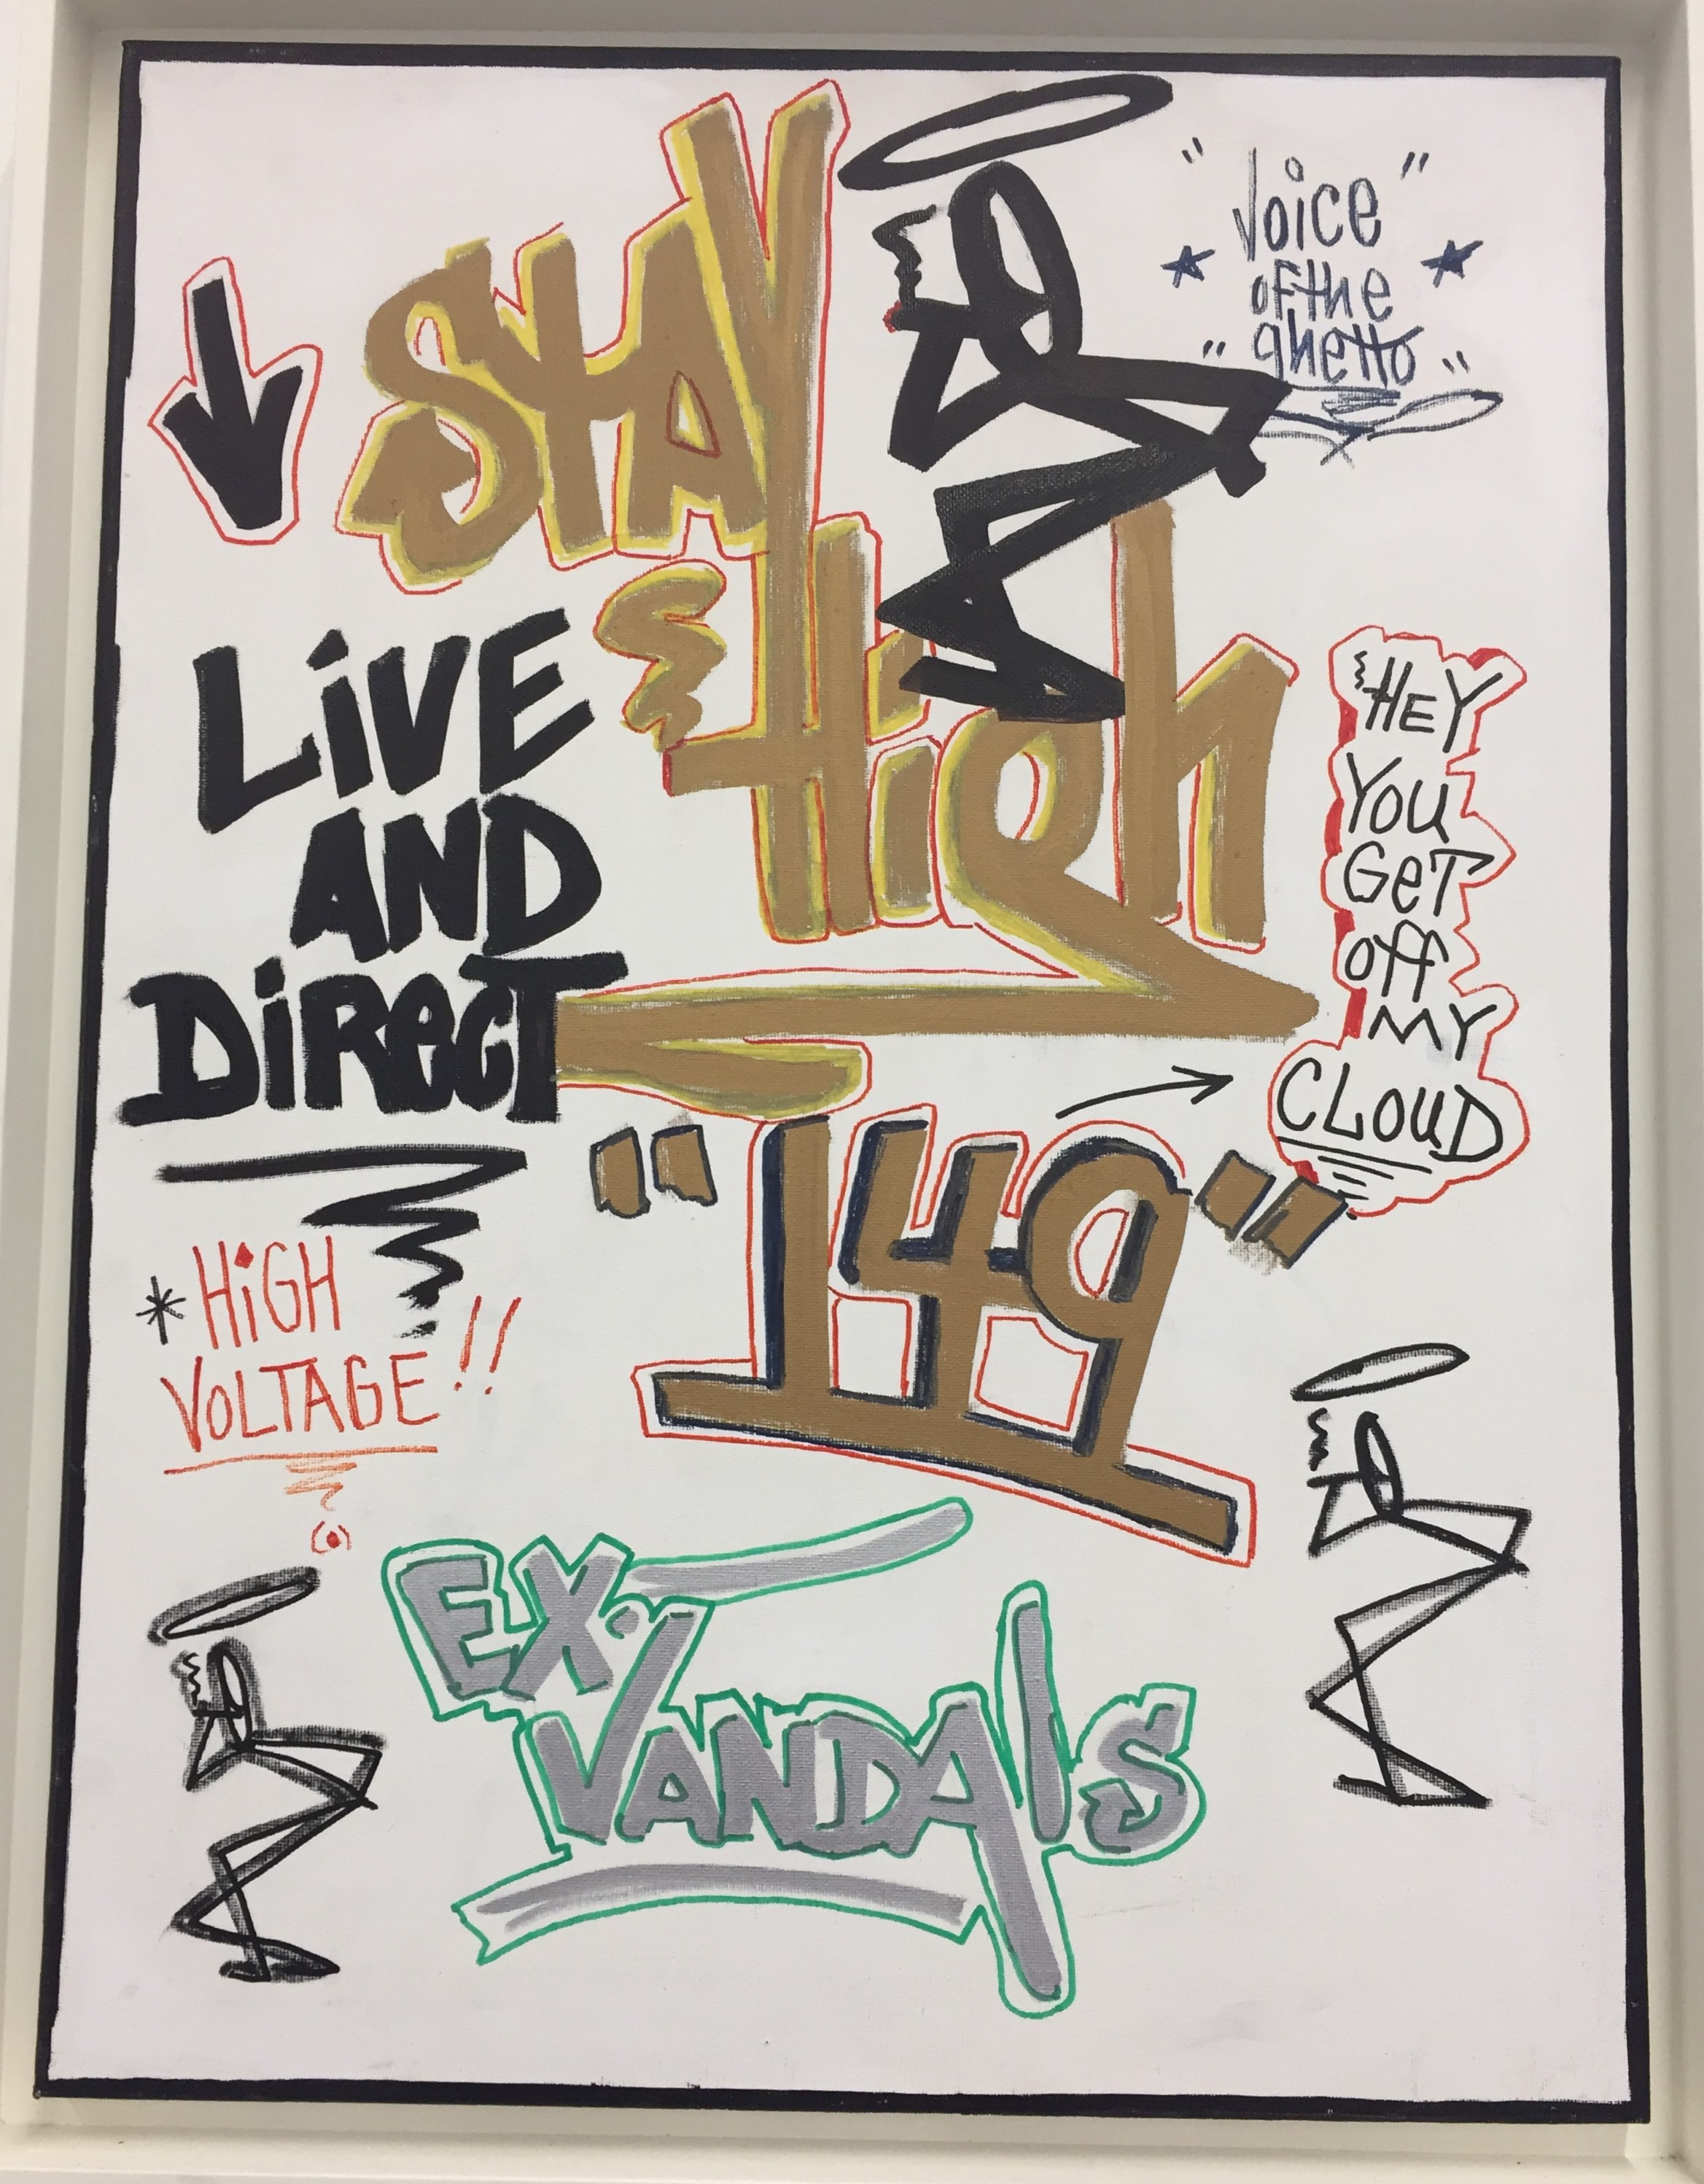 "Voice"
of the
"ghetto"
STAY
High
"149"
LiVE
AND
DiRecT
HEY
You
GeT
off
MY
CLOuD
*HiGH
VOLTAGE!!
EX.
VANDAlS